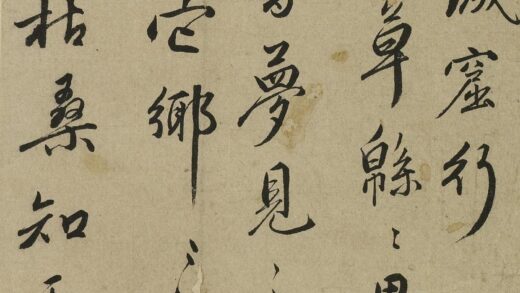 窟行
草緜〻
夢見〻
它鄉〻
枯桑知